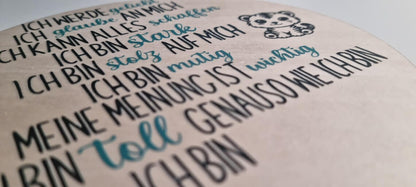 ICH WERDE geliebt
ICH glaube AN MICH
ICH KANN ALLES schaffen
ICH BIN stark
ICH BIN stolz AUF MICH
ICH BIN mutig
MEINE MEINUNG IST wichtig
BIN toll GENAUSO WIE ICH BIN
ICH BIN